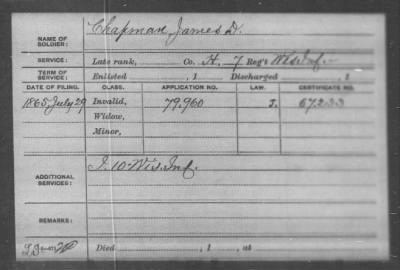 NAME OF SOLDIER: Chapman, James D.
SERVICE: Late rank, Co. H. 7 Reg't Wis Inf.
TERM OF SERVICE: Enlisted , 1 Discharged , 1
DATE OF FILING. CLASS. APPLICATION NO. LAW. CERTIFICATE NO.
1865, July 29 Invalid, 79.960 J. 67233
Widow,
Minor,
ADDITIONAL SERVICES: I. 10 Wis. Inf.
REMARKS:
Died , 1 , at